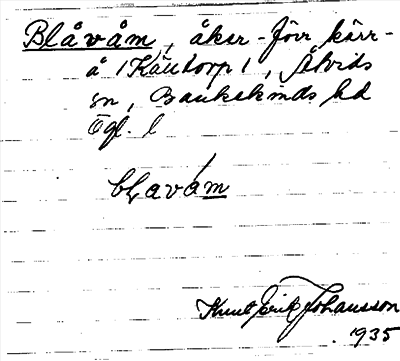 Blåvåm, åker - förr kärr-
å (Käutorp), Åtvids
sn, Bankekinds hd
Ögl. l
blavám
Knut Erik Johansson
1935